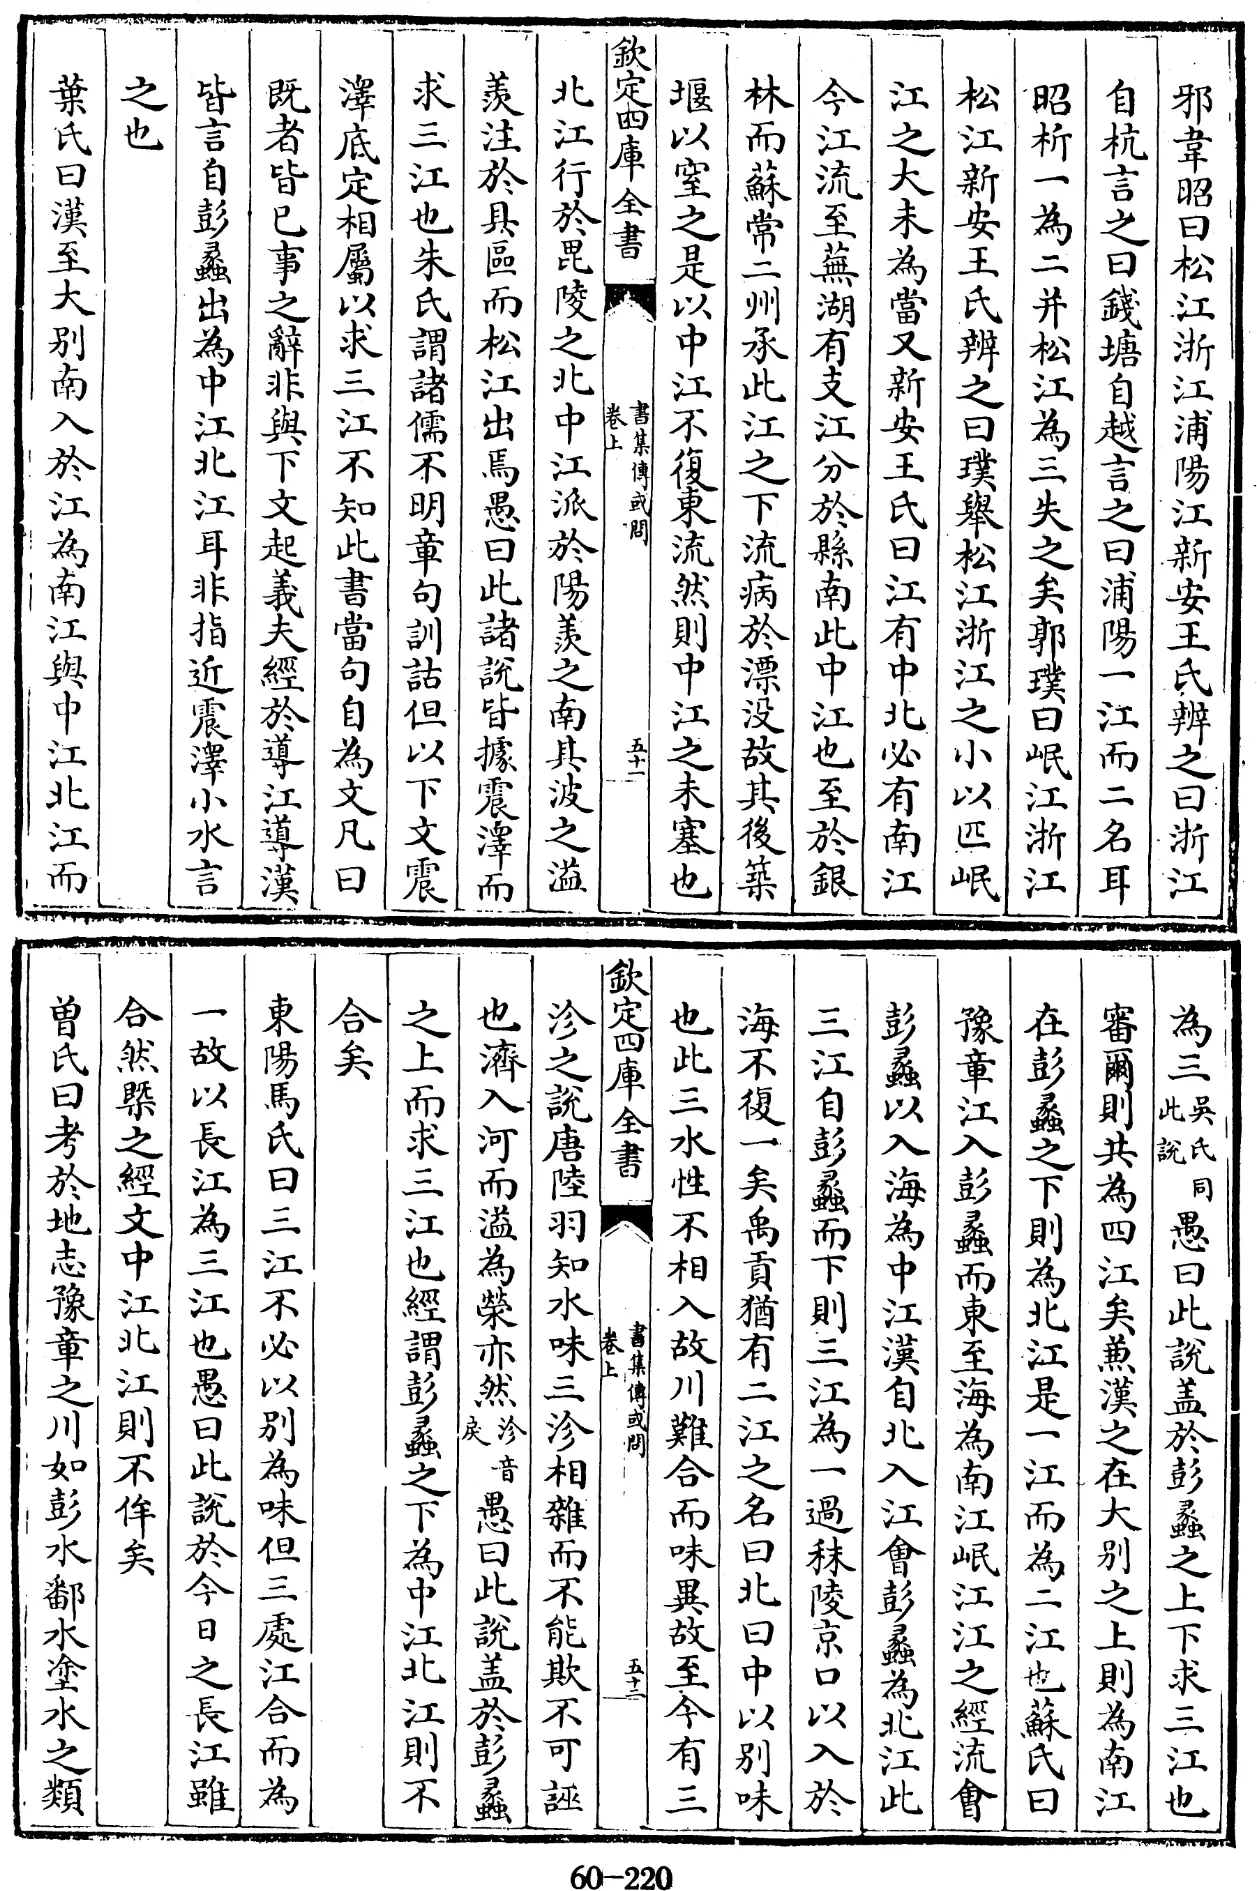 邪韋昭曰松江浙江浦陽江新安王氏辨之曰浙江
自杭言之曰錢塘自越言之曰浦陽一江而二名耳
昭析一為二并松江為三失之矣郭璞曰岷江浙江
松江新安王氏辨之曰璞舉松江浙江之小以匹岷
江之大未為當又新安王氏曰江有中北必有南江
今江流至蕪湖有支江分於縣南此中江也至於銀
林而蘇常二州承此江之下流病於漂没故其後築
堰以窒之是以中江不復東流然則中江之未塞也
欽定四庫全書
書集傳或問
卷上
五十一
北江行於毘陵之北中江派於陽羨之南其波之溢
羨注於具區而松江出焉愚曰此諸說皆據震澤而
求三江也朱氏謂諸儒不明章句訓詁但以下文震
澤底定相屬以求三江不知此書當句自為文凡曰
既者皆已事之辭非與下文起義夫經於導江導漢
皆言自彭蠡出為中江北江耳非指近震澤小水言
之也
葉氏曰漢至大别南入於江為南江與中江北江而
為三吳氏同此說愚曰此說盖於彭蠡之上下求三江也
審爾則共為四江矣兼漢之在大别之上則為南江
在彭蠡之下則為北江是一江而為二江也蘇氏曰
豫章江入彭蠡而東至海為南江岷江江之經流會
彭蠡以入海為中江漢自北入江會彭蠡為北江此
三江自彭蠡而下則三江為一過秣陵京口以入於
海不復一矣禹貢猶有二江之名曰北曰中以别味
也此三水性不相入故川難合而味異故至今有三
欽定四庫全書
書集傳或問
卷上
五十二
泠之說唐陸羽知水味三泠相雜而不能欺不可誣
也濟入河而溢為滎亦然泠音戾愚曰此說盖於彭蠡
之上而求三江也經謂彭蠡之下為中江北江則不
合矣
東陽馬氏曰三江不必以别為味但三處江合而為
一故以長江為三江也愚曰此說於今日之長江雖
合然槩之經文中江北江則不侔矣
曽氏曰考於地志豫章之川如彭水鄱水塗水之類
60-220